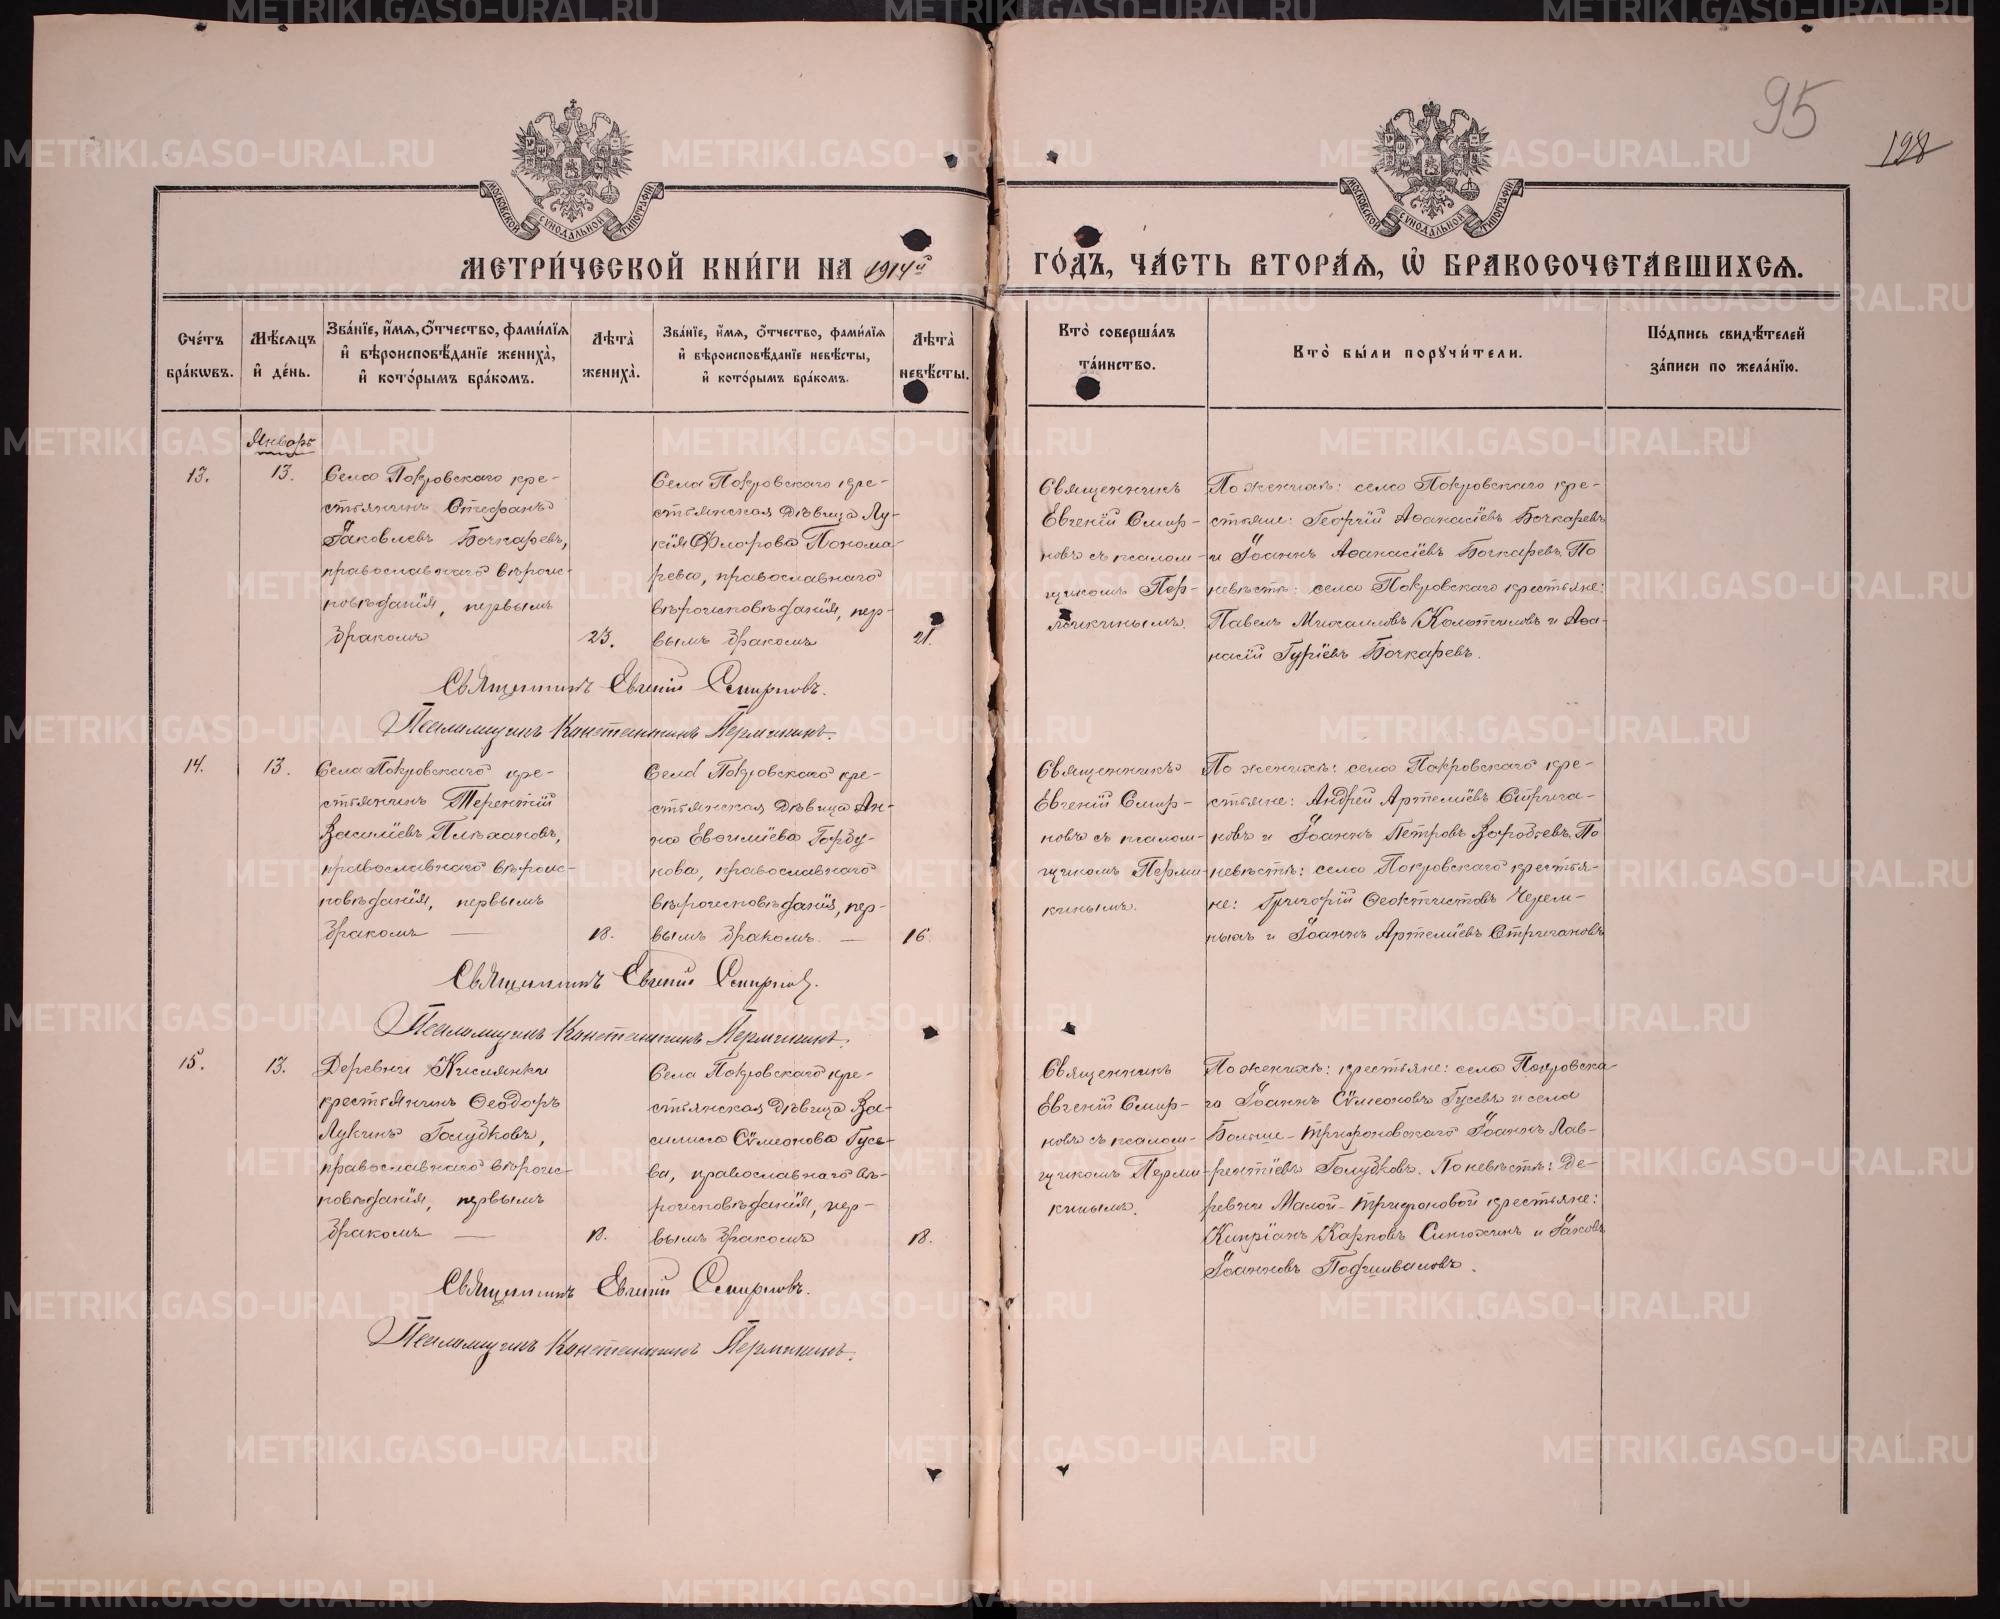 95
128
МОСКОВСКОЙ СУНОДАЛЬНОЙ ТИПОГРАФІИ
МОСКОВСКОЙ СУНОДАЛЬНОЙ ТИПОГРАФІИ
МЕТРИ́ЧЕСКОЙ КНИ́ГИ НА 1914й ГО́ДЪ, ЧА́СТЬ ВТОРА́Я, Ѡ БРАКОСОЧЕТА́ВШИХСЯ.
Сче́тъ бра́кѡвъ.
Мѣ́сяцъ и҆ де́нь.
Зва́нїе, и҆́мя, ѻ҆́тчество, фами́лїя
и҆ вѣроисповѣ́данїе жениха̀,
и҆ кото́рымъ бра́комъ.
Лѣта̀ жениха̀.
Зва́нїе, и҆́мя, ѻ҆́тчество, фами́лїя
и҆ вѣроисповѣ́данїе невѣ́сты,
и҆ кото́рымъ бра́комъ.
Лѣта̀ невѣ́сты.
Кто̀ соверша́лъ
та́инство.
Кто̀ бы́ли порꙋчи́тели.
По́дпись свидѣ́телей
за́писи по жела́нїю.
Январь
13.
13.
Села Покровскаго кре-
стьянинъ Стефанъ
Іаковлевъ Бочкаревъ,
православнаго вѣроис-
повѣданія, первымъ
бракомъ
23.
Села Покровскаго кре-
стьянская дѣвица Лу-
кія Флорова Понома-
рева, православнаго
вѣроисповѣданія, пер-
вымъ бракомъ
21.
Священникъ
Евгеній Смир-
новъ съ псалом-
щикомъ Пер-
мякинымъ.
По женихѣ: села Покровскаго кре-
стьяне: Георгій Аѳанасіевъ Бочкаревъ
и Іоаннъ Аѳанасіевъ Бочкаревъ. По
невѣстѣ: села Покровскаго крестьяне:
Павелъ Михаиловъ Колотиловъ и Аѳа-
насій Гуріевъ Бочкаревъ.
Священникъ Евгеній Смирновъ.
Псаломщикъ Константинъ Пермикинъ.
14.
13.
Села Покровскаго кре-
стьянинъ Терентій
Василіевъ Плѣхановъ,
православнаго вѣроис-
повѣданія, первымъ
бракомъ —
18.
Села Покровскаго кре-
стьянская дѣвица Ан-
на Евѳиміева Горбу-
нова, православнаго
вѣроисповѣданія, пер-
вымъ бракомъ. —
16.
Священникъ
Евгеній Смир-
новъ съ псалом-
щикомъ Перми-
кинымъ.
По женихѣ: села Покровскаго кре-
стьяне: Андрей Артеміевъ Стрига-
новъ и Іоаннъ Петровъ Воробьевъ. По
невѣстѣ: села Покровскаго крестья-
не: Григорій Ѳеоктистовъ Черем-
ныхъ и Іоаннъ Артеміевъ Стригановъ
Священникъ Евгеній Смирновъ.
Псаломщикъ Константинъ Пермикинъ.
15.
13.
Деревни Кислянки
крестьянинъ Ѳеодоръ
Лукинъ Голубковъ,
православнаго вѣроис-
повѣданія, первымъ
бракомъ —
18.
Села Покровскаго кре-
стьянская дѣвица Ва-
силиса Сѵмеонова Гусе-
ва, православнаго вѣ-
роисповѣданія, пер-
вымъ бракомъ
18.
Священникъ
Евгеній Смир-
новъ съ псалом-
щикомъ Перми-
кинымъ.
По женихѣ: крестьяне: села Покровска-
го Іоаннъ Сѵмеоновъ Гусевъ и села
Больше-Трифоновскаго Іоаннъ Лав-
рентіевъ Голубковъ. По невѣстѣ: де-
ревни Малой-Трифоновой крестьяне:
Кипріанъ Карповъ Синюхинъ и Іаковъ
Іоанновъ Подшиваловъ.
Священникъ Евгеній Смирновъ.
Псаломщикъ Константинъ Пермикинъ.
METRIKI.GASO-URAL.RU